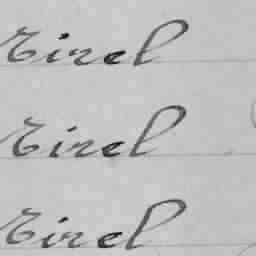 Eirel
Eirel
Eirel